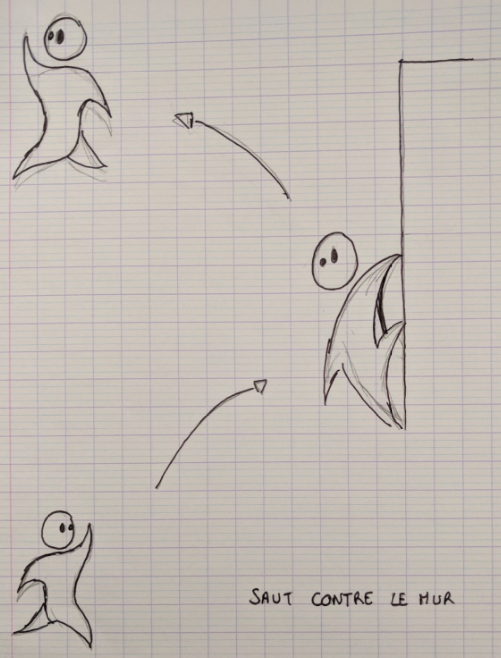 SAUT CONTRE LE MUR